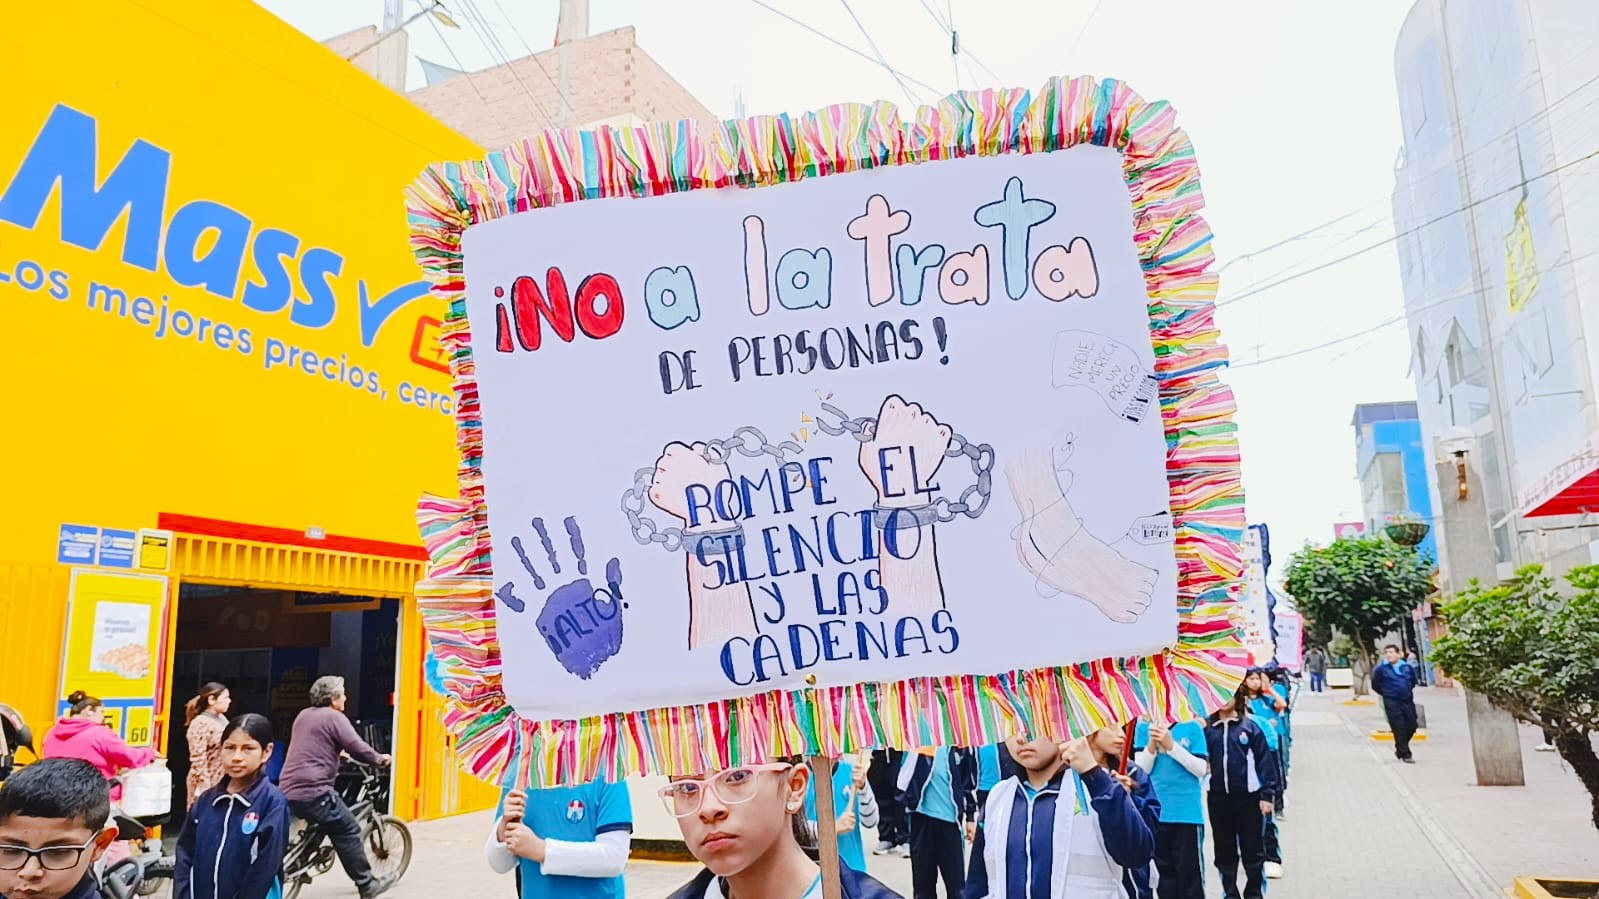 Mass
Los mejores precios, cerc
¡No a la trata
DE PERSONAS!
NADIE
MERECE
UN
PRECIO
ROMPE EL
SILENCIO
y LAS
CADENAS
¡ALTO!